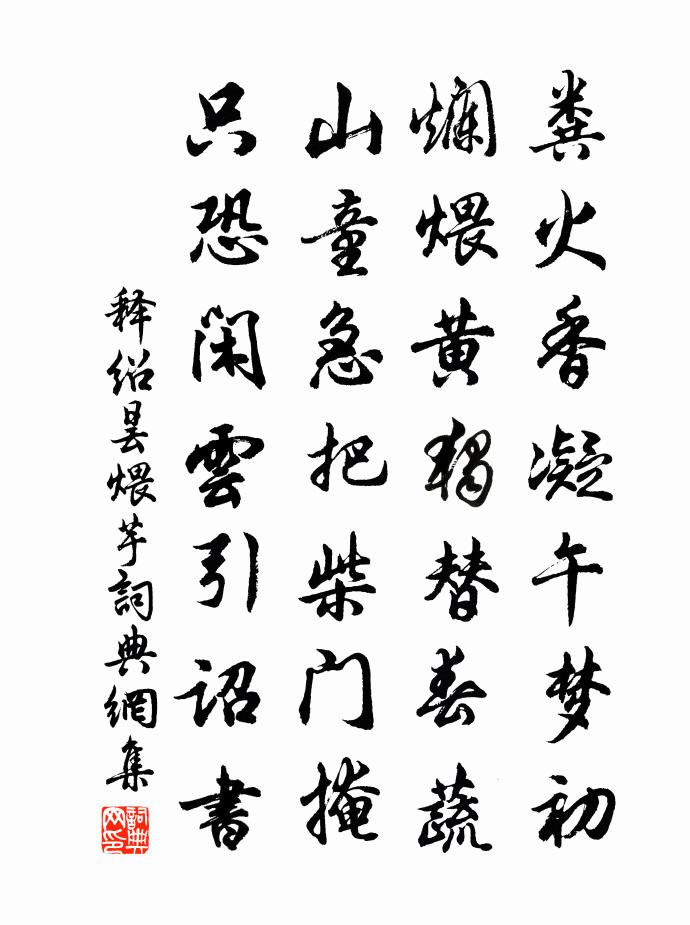 粪火香凝午梦初
爛煨黄独替春蔬
山童急把柴门掩
只恐闲雲引詔書
释绍昙煨芋詞典網集
詞典网印